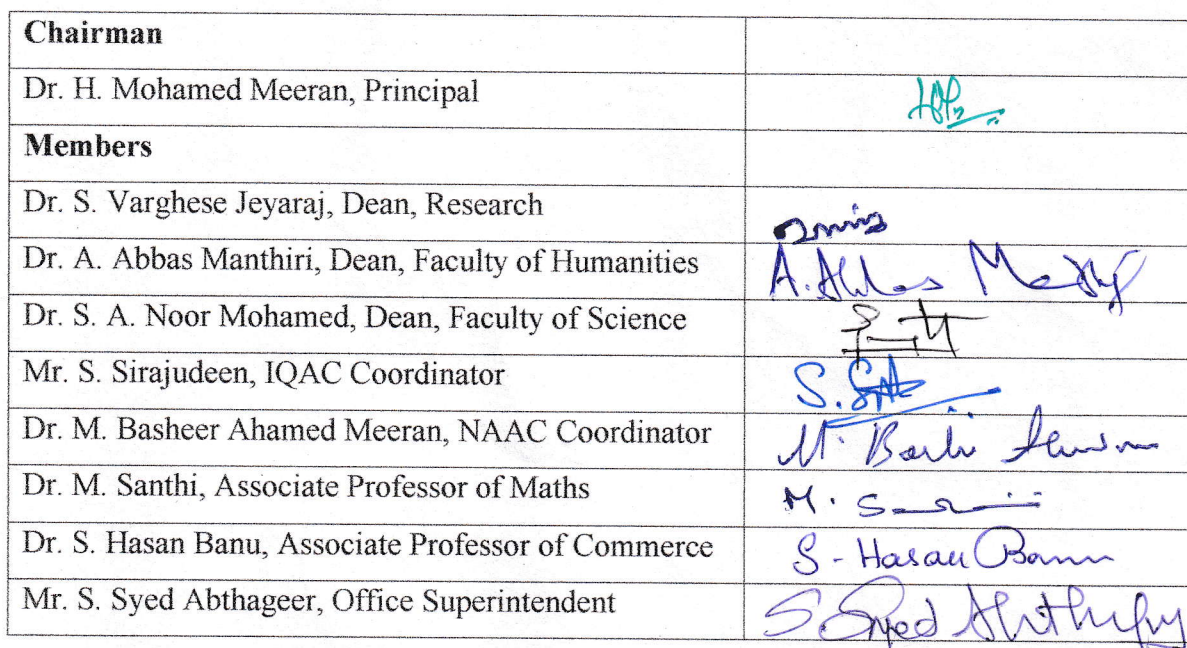 Chairman
Dr. H. Mohamed Meeran, Principal
Members
Dr. S. Varghese Jeyaraj, Dean, Research
Dr. A. Abbas Manthiri, Dean, Faculty of Humanities
Dr. S. A. Noor Mohamed, Dean, Faculty of Science
Mr. S. Sirajudeen, IQAC Coordinator
Dr. M. Basheer Ahamed Meeran, NAAC Coordinator
Dr. M. Santhi, Associate Professor of Maths
M. S
Dr. S. Hasan Banu, Associate Professor of Commerce S-Hasan Banu
Mr. S. Syed Abthageer, Office Superintendent S. Syed